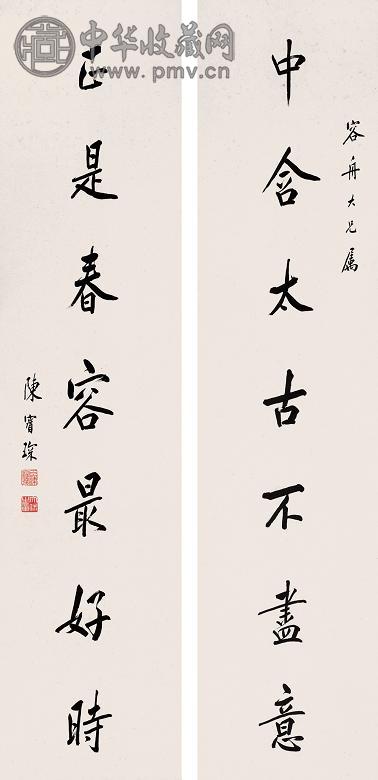 容舟大兄属
中含太古不盡意
正是春容最好時
陳寶琛
中华收藏网
www.pmv.cn